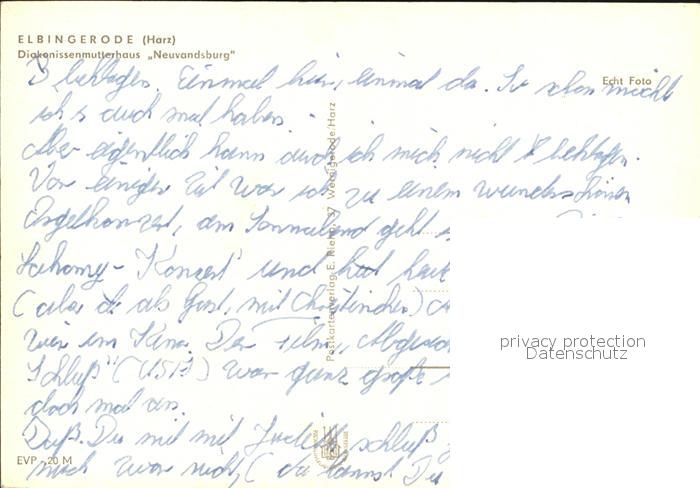 ELBINGERODE (Harz)
Diakonissenmutterhaus „Neuvandsburg"
Echt Foto
beklagen. Einmal hin, einmal da. So schön möcht
ich's auch mal haben.
Aber eigentlich kann ich mich nicht beklagen.
Vor einiger Zeit war ich zu einem wunderschönen
Orgelkonzert, am Sonnabend geht
Konzert und
(also als Gast, mit Christinchen)
wir im Kino. Der Film,
Schluß" (USA) war ganz große
doch mal an.
Daß Du mit mit Judith schluß
mich zwar nicht, (da kannst Du
Postkartenverlag E. Riehn, 37 Wernigerode/Harz
EVP -,20 M
privacy protection
Datenschutz